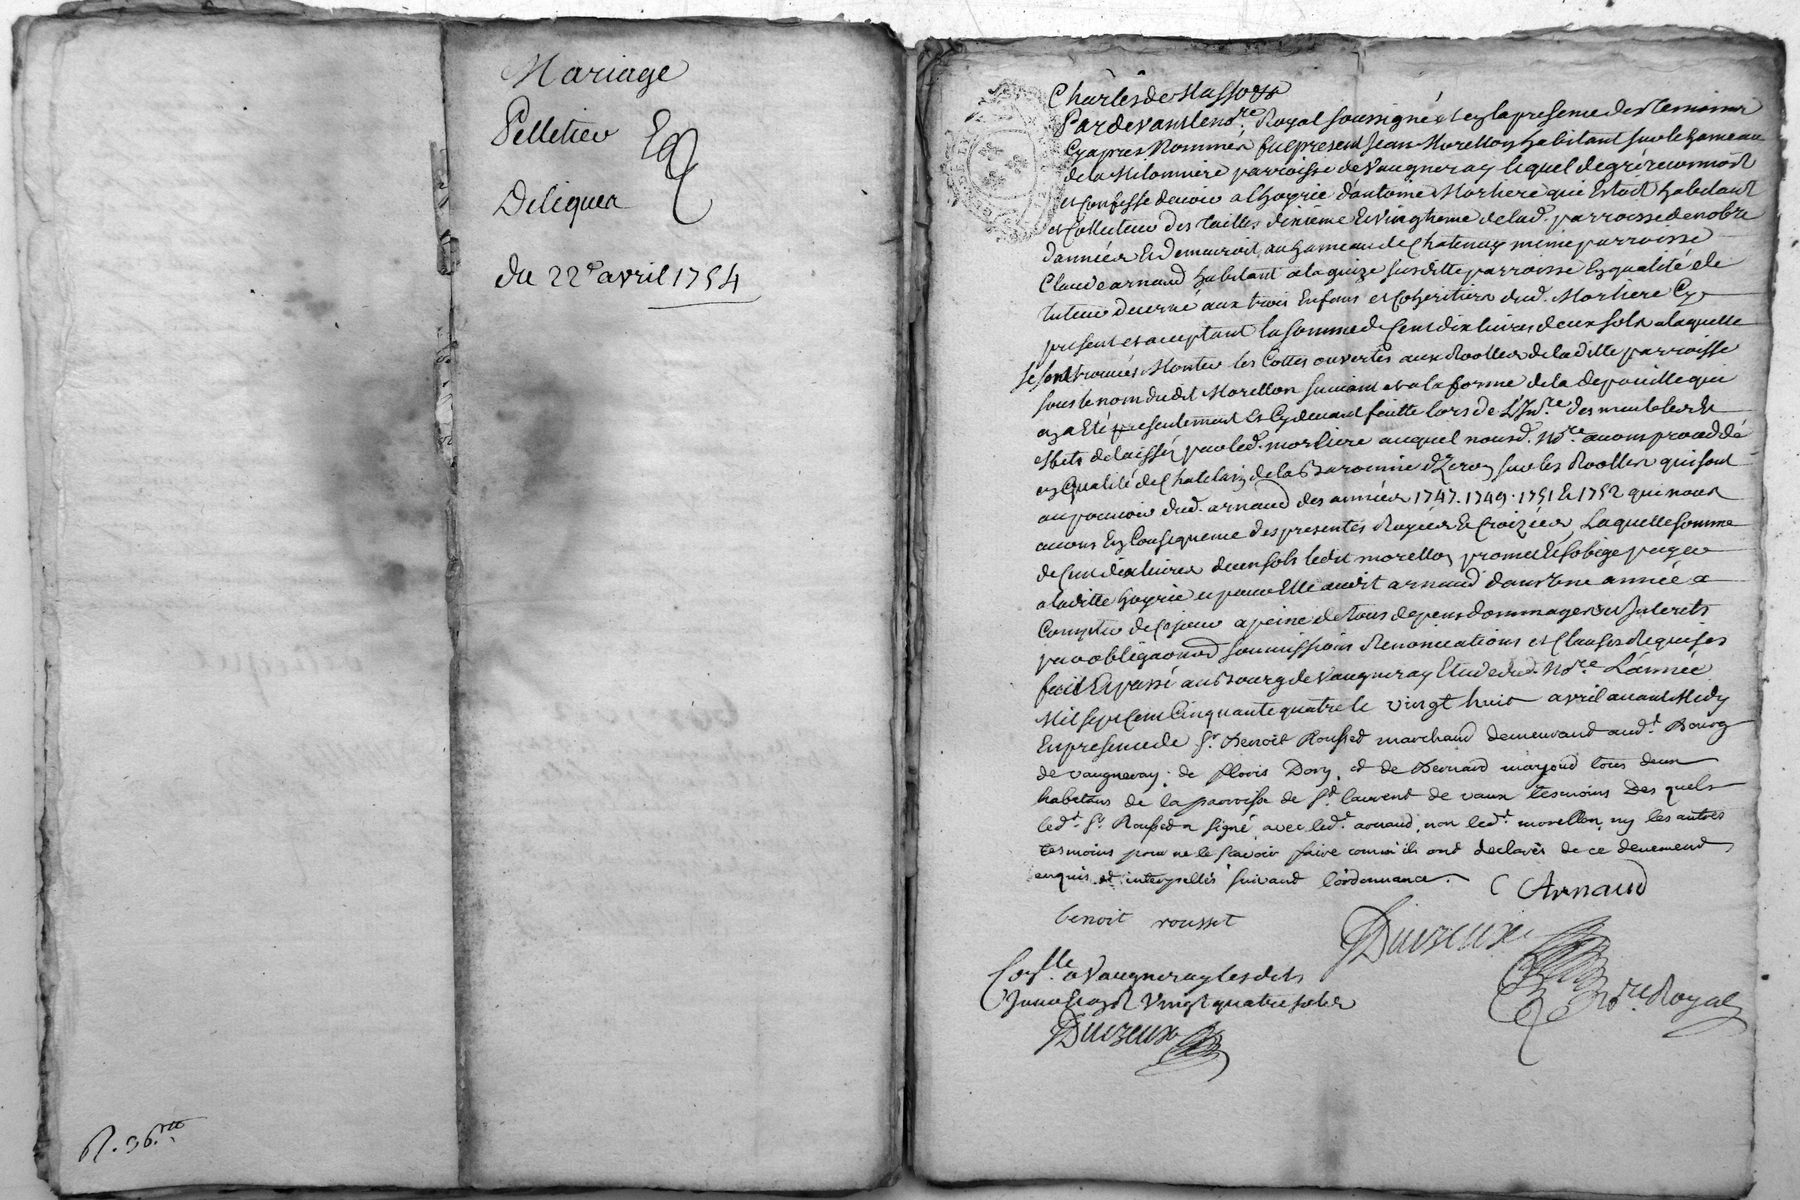 Mariage
Pelletier Et
Deliquer
du 22e avril 1754
R. 36.
Pardevant le nore. Royal soussigné et en la presence des temoins
Cy apres Nommés fut present Jean Morellon habitant sur le hameau
de la Milonniere parroisse de Vaugneray lequel de gré reconnoit
et confesse devoir a l'hoyrie d'antoine Morliere qui Estoit habitant
et Collecteur des tailles dixieme Et vingtieme de lad. parroisse de nobre
d'années Et demeuroit au hameau de Chatenay même parroisse
Claude arnaud habitant a la susditte parroisse En qualité de
tuteur decerné aux trois Enfans et Coheritiers dud. Morliere Cy
present et acceptant la somme de Cent dix livres deux sols a laquelle
se sont trouvés Monter les Cottes ouvertes aux Roolles de laditte parroisse
sous le nom dudit Morellon suivant et a la forme de la depouille qui
en a Eté presentement Et Cy devant faitte lors de L'Inre. des meubles Et
effets delaissés par led. morliere auquel nousd. Nore. avons procedé
en Qualité de Chatelain de la Baronnie d'Zeron sur les Roolles qui sont
au pouvoir dud. arnaud des années 1747. 1749. 1751 Et 1752 que nous
avons En Consequence des presentes Rayées Et Croizées Laquelle somme
de Cent dix livres deux sols ledit morellon promet Et s'oblige payer
a laditte hoyrie et pour Elle audit arnaud dans Une année a
Compter de Ce jour a peine de tous depens dommages et Interets
par obligaon. soumissions Renonciations et Clauses Requises
fait Et passé au Bourg de Vaugneray Etude dud. Nore. L'année
Mil sept Cent Cinquante quatre le vingt huit avril avant Midy
En presence de Sr. Benoit Rousset marchand demeurant aud. Bourg
de vaugneray, de floris Dory, et de Bernard mayoud tous deux
habitans de la parroisse de St. laurent de vaux tesmoins Des quels
led. Sr. Rousset a signé avec led. arnaud, non led. morellon, ny les autres
tesmoins pour ne le sçavoir faire comm'ils ont declarés de ce deuement
enquis et interpellés suivant l'ordonnance.
C Arnaud
benoit rousset
Duvzeux
nore. Royal
Conllé. a Vaugneray lesdits
Jour Et an Rt Vingt quatre sols
Duvzeux